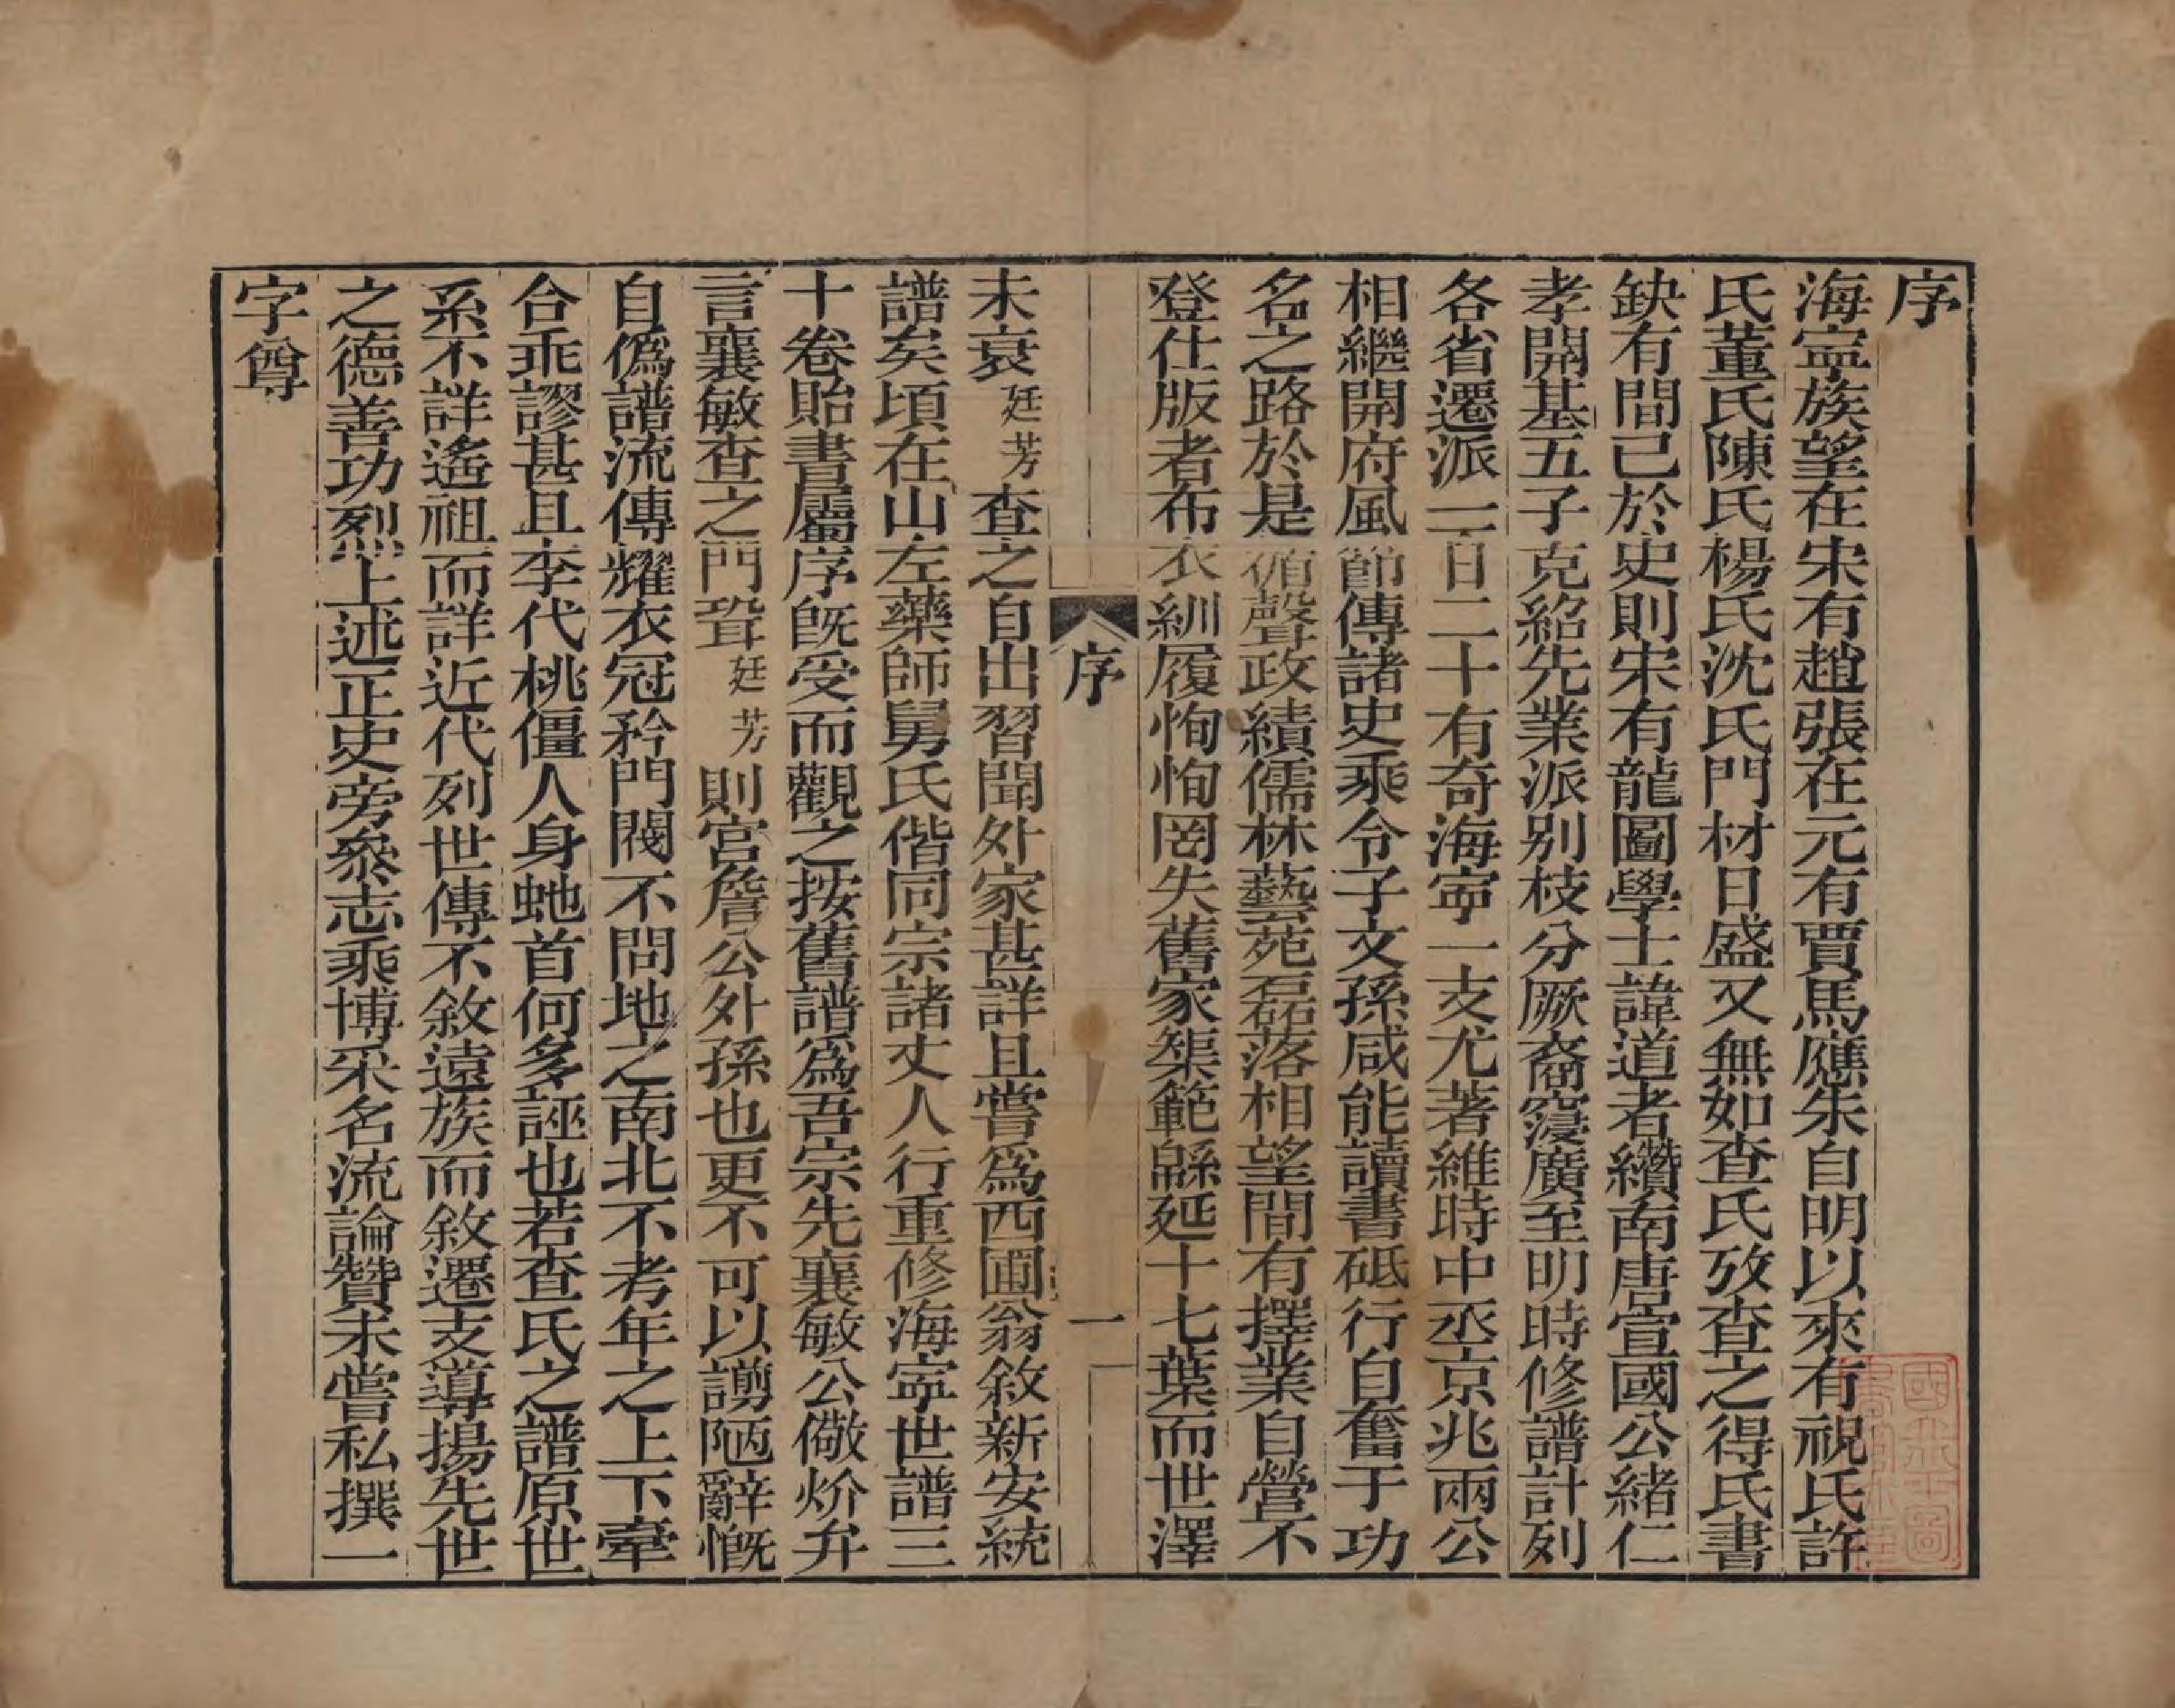 序
海寧族望在宋有趙張在元有賈馬應朱自明以來有祝氏許
氏董氏陳氏楊氏沈氏門材日盛又無如查氏攷查之得氏書
缺有間已於史則宋有龍圖學士諱道者纘南唐宣國公緒仁
孝開基五子克紹先業派别枝分厥裔寖廣至明時修譜計列
各省遷派一百二十有奇海寧一支尤著維時中丞京兆兩公
相繼開府風節傳諸史乘令子文孫咸能讀書砥行自奮于功
名之路於是循聲政績儒林藝苑磊落相望間有擇業自營不
登仕版者布衣紃履恂恂罔失舊家榘範緜延十七葉而世澤
序
一
未衰廷芳查之自出習聞外家甚詳且嘗爲西圃翁敘新安統
譜矣頃在山左藥師舅氏偕同宗諸丈人行重修海寧世譜三
十卷貽書屬序旣受而觀之按舊譜爲吾宗先襄敏公儆炌弁
言襄敏查之門壻廷芳則宮詹公外孫也更不可以謭陋辭慨
自僞譜流傳耀衣冠矜門閥不問地之南北不考年之上下牽
合乖謬甚且李代桃僵人身虵首何多誣也若查氏之譜原世
系不詳遙祖而詳近代列世傳不敘遠族而敘遷支導揚先世
之德善功烈上述正史旁叅志乘博采名流論贊未嘗私撰一
字尊